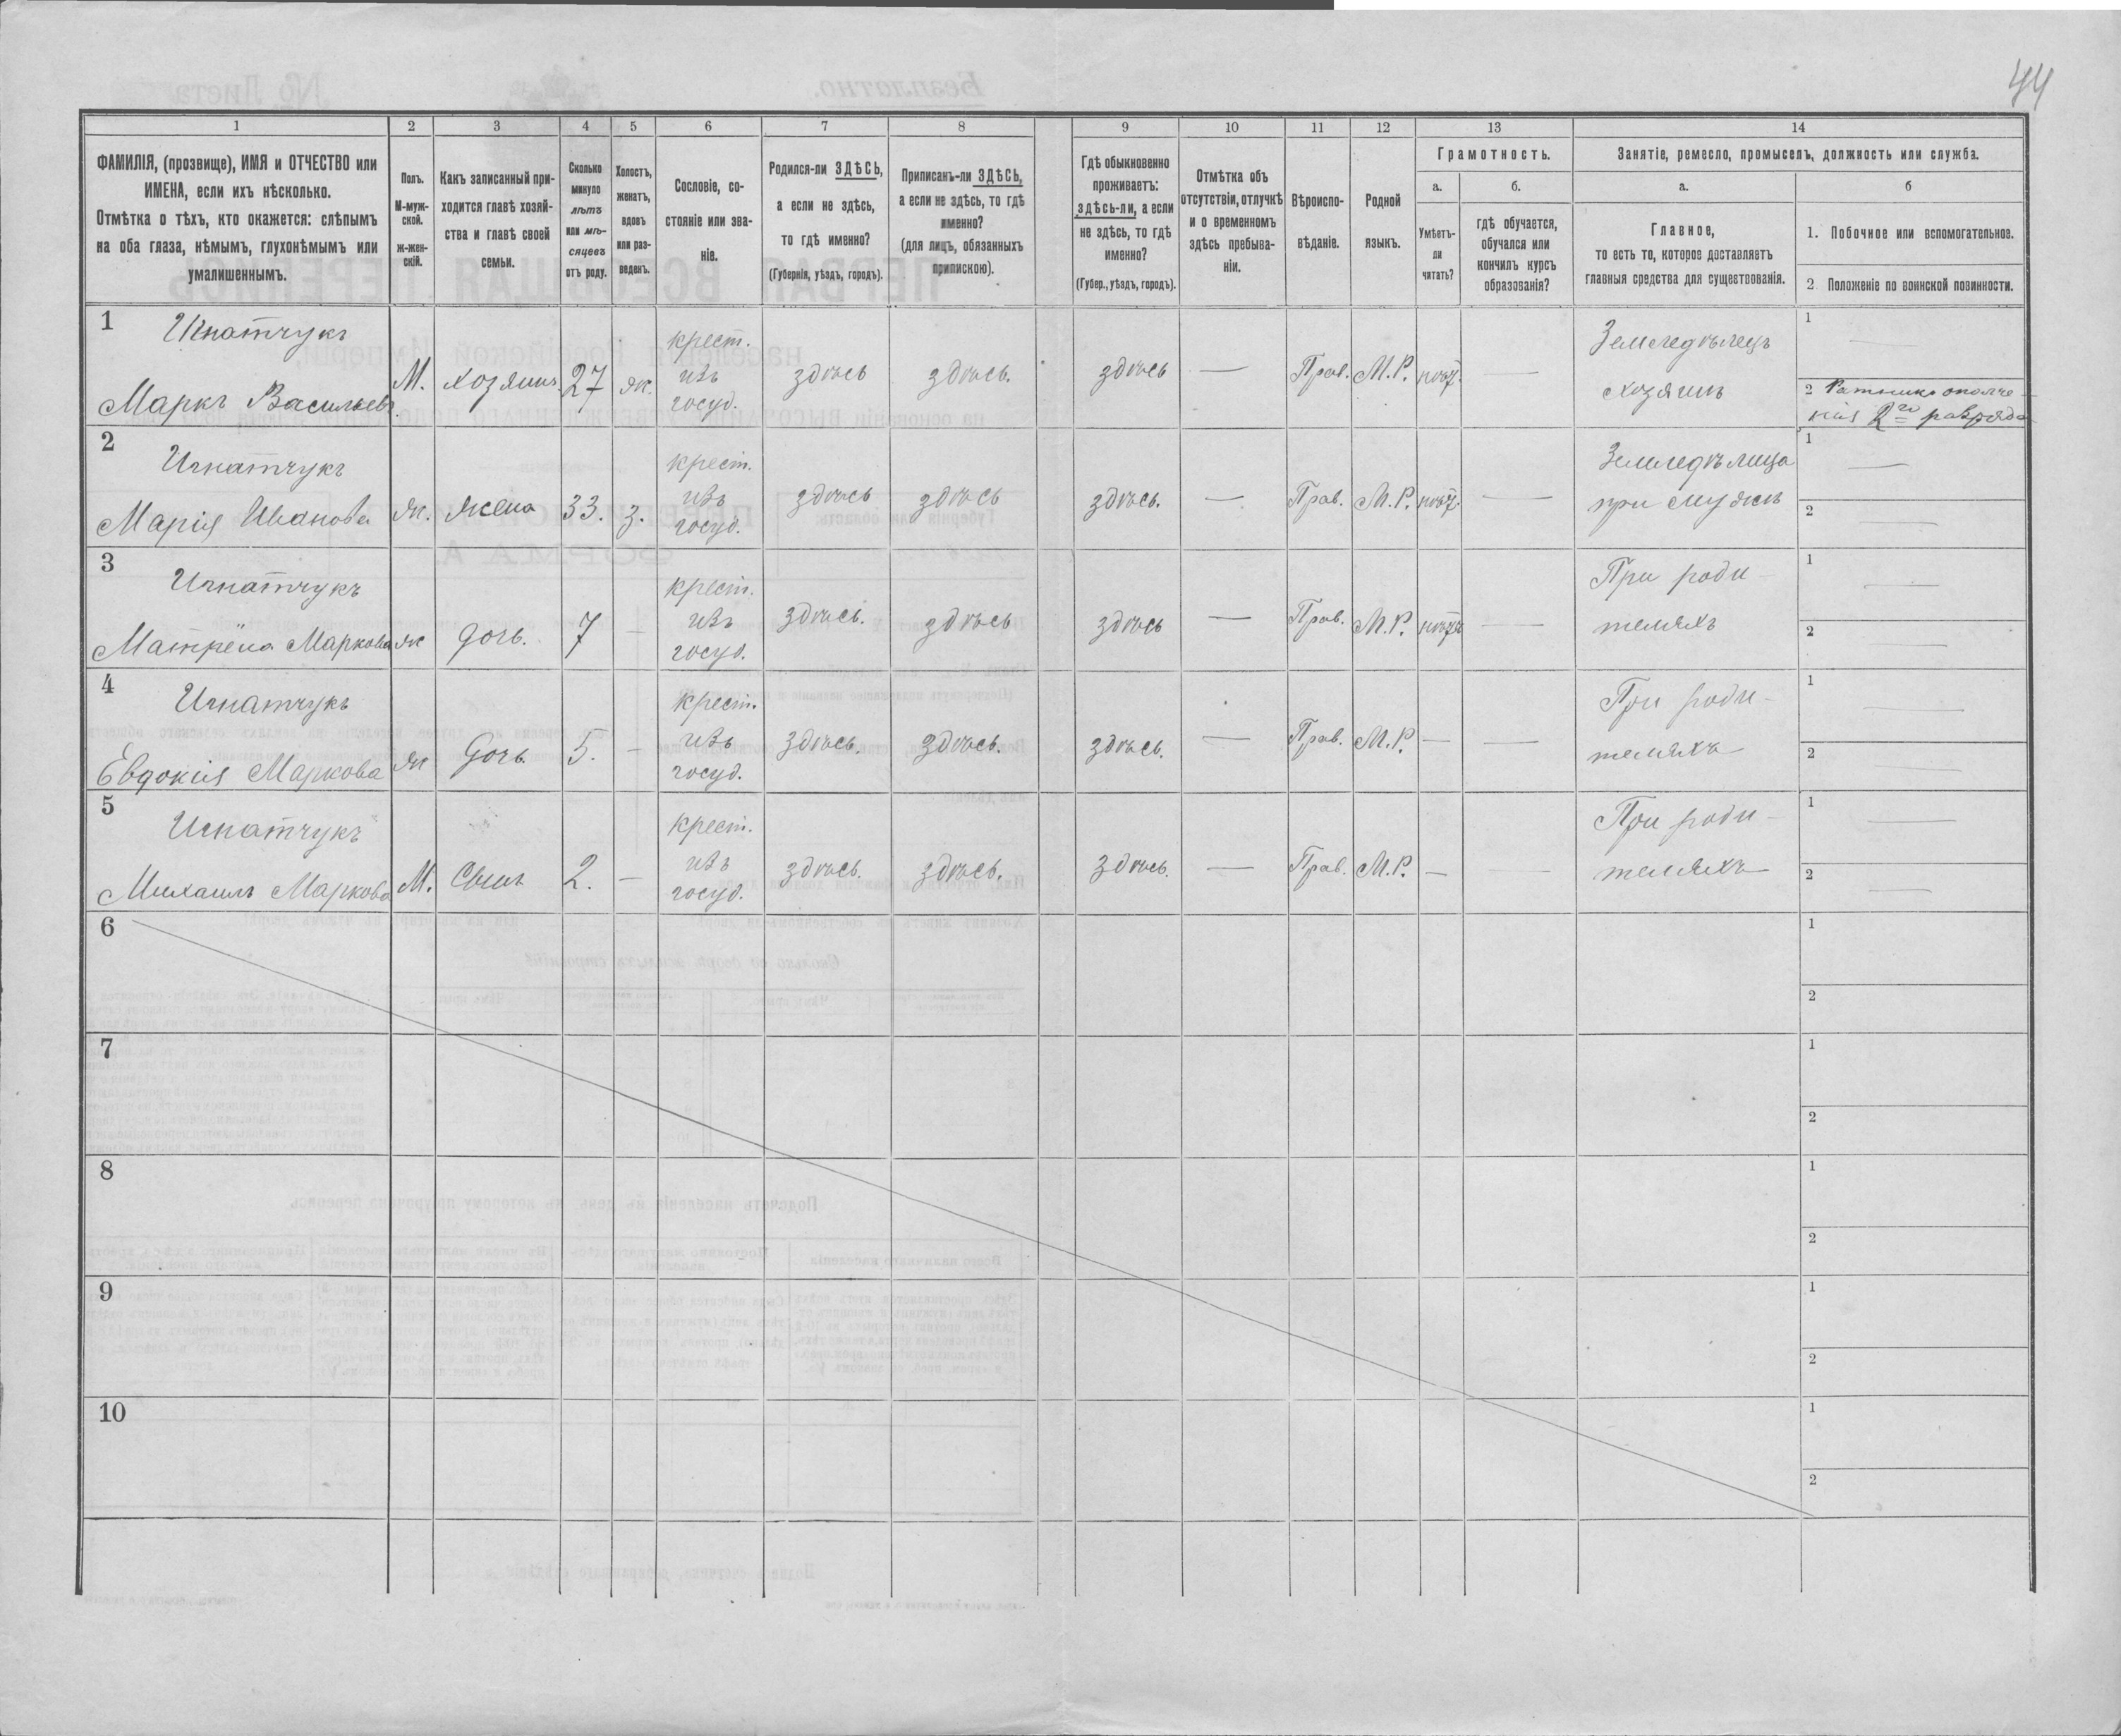 44
1 2 3 4 5 6 7 8 9 10 11 12 13 14
ФАМИЛІЯ, (прозвище), ИМЯ и ОТЧЕСТВО или
ИМЕНА, если ихъ нѣсколько.
Отмѣтка о тѣхъ, кто окажется: слѣпымъ
на оба глаза, нѣмымъ, глухонѣмымъ или
умалишеннымъ.
Полъ.
М-муж-
ской.
ж-жен-
скій.
Какъ записанный при-
ходится главѣ хозяй-
ства и главѣ своей
семьи.
Сколько
минуло
лѣтъ
или мѣ-
сяцевъ
отъ роду.
Холостъ,
женатъ,
вдовъ
или раз-
веденъ.
Сословіе, со-
стояніе или зва-
ніе.
Родился-ли ЗДѢСЬ,
а если не здѣсь,
то гдѣ именно?
(Губернія, уѣздъ, городъ).
Приписанъ-ли ЗДѢСЬ,
а если не здѣсь, то гдѣ
именно?
(для лицъ, обязанныхъ
припискою).
Гдѣ обыкновенно
проживаетъ:
здѣсь-ли, а если
не здѣсь, то гдѣ
именно?
(Губер., уѣздъ, городъ).
Отмѣтка объ
отсутствіи, отлучкѣ
и о временномъ
здѣсь пребыва-
ніи.
Вѣроиспо-
вѣданіе.
Родной
языкъ.
Грамотность.
а.
Умѣетъ-
ли
читать?
б.
гдѣ обучается,
обучался или
кончилъ курсъ
образованія?
Занятіе, ремесло, промыселъ, должность или служба.
а.
Главное,
то есть то, которое доставляетъ
главныя средства для существованія.
б
1. Побочное или вспомогательное.
2 Положеніе по воинской повинности.
1 Игнатчукъ
Маркъ Васильевъ. М. хозяинъ 27 ж. крест. изъ госуд. здѣсь здѣсь. здѣсь — Прав. М.Р. —
Земледѣлецъ
хозяинъ
1 —
2 Ратникъ ополче-
нія 2го разряда
2 Игнатчукъ
Марія Иванова ж. жена 33. з. крест. изъ госуд. здѣсь здѣсь здѣсь. — Прав. М.Р. —
Земледѣлица
при мужѣ
1 —
2 —
3 Игнатчукъ
Матрёна Маркова ж дочь. 7 — крест. изъ госуд. здѣсь. здѣсь здѣсь — Прав. М.Р. —
При роди-
теляхъ
1 —
2 —
4 Игнатчукъ
Евдокія Маркова ж дочь 5. — крест. изъ госуд. здѣсь. здѣсь. здѣсь. — Прав. М.Р. — —
При роди-
теляхъ
1 —
2 —
5 Игнатчукъ
Михаилъ Маркова М. Сынъ 2. — крест. изъ госуд. здѣсь. здѣсь. здѣсь. — Прав. М.Р. — —
При роди-
теляхъ
1 —
2 —
6
1
2
7
1
2
8
1
2
9
1
2
10
1
2